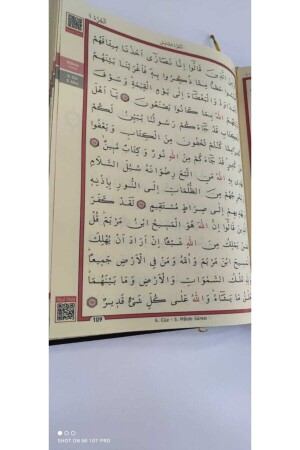 الَّذِينَ قَالُوا إِنَّا نَصَارَى أَخَذْنَا مِيثَاقَهُمْ
حَظًّا مِمَّا ذُكِّرُوا بِهِ فَأَغْرَيْنَا بَيْنَهُمُ
وَالْبَغْضَاءَ إِلَى يَوْمِ الْقِيَمَةِ وَسَوْفَ
اللَّهُ بِمَا كَانُوا يَصْنَعُونَ يَا أَهْلَ
قَدْ جَاءَكُمْ رَسُولُنَا يُبَيِّنُ لَكُمْ
مِمَّا كُنْتُمْ تُخْفُونَ مِنَ الْكِتَابِ وَيَعْفُوا
قَدْ جَاءَكُمْ مِنَ اللَّهِ نُورٌ وَكِتَابٌ مُبِينٌ
اللَّهُ مَنِ اتَّبَعَ رِضْوَانَهُ سُبُلَ السَّلَامِ
مِنَ الظُّلُمَاتِ إِلَى النُّورِ بِإِذْنِهِ
إِلَى صِرَاطٍ مُسْتَقِيمٍ لَقَدْ كَفَرَ
قَالُوا إِنَّ اللَّهَ هُوَ الْمَسِيحُ ابْنُ مَرْيَمَ قُلْ
يَمْلِكُ مِنَ اللَّهِ شَيْئًا إِنْ أَرَادَ أَنْ يُهْلِكَ
ابْنَ مَرْيَمَ وَأُمَّهُ وَمَنْ فِي الْأَرْضِ جَمِيعًا
مُلْكُ السَّمَوَاتِ وَالْأَرْضِ وَمَا بَيْنَهُمَا
مَا يَشَاءُ وَاللَّهُ عَلَى كُلِّ شَيْءٍ قَدِيرٌ
109
6. Cüz - 5. Mâide Sûresi
SHOT ON MI 10T PRO